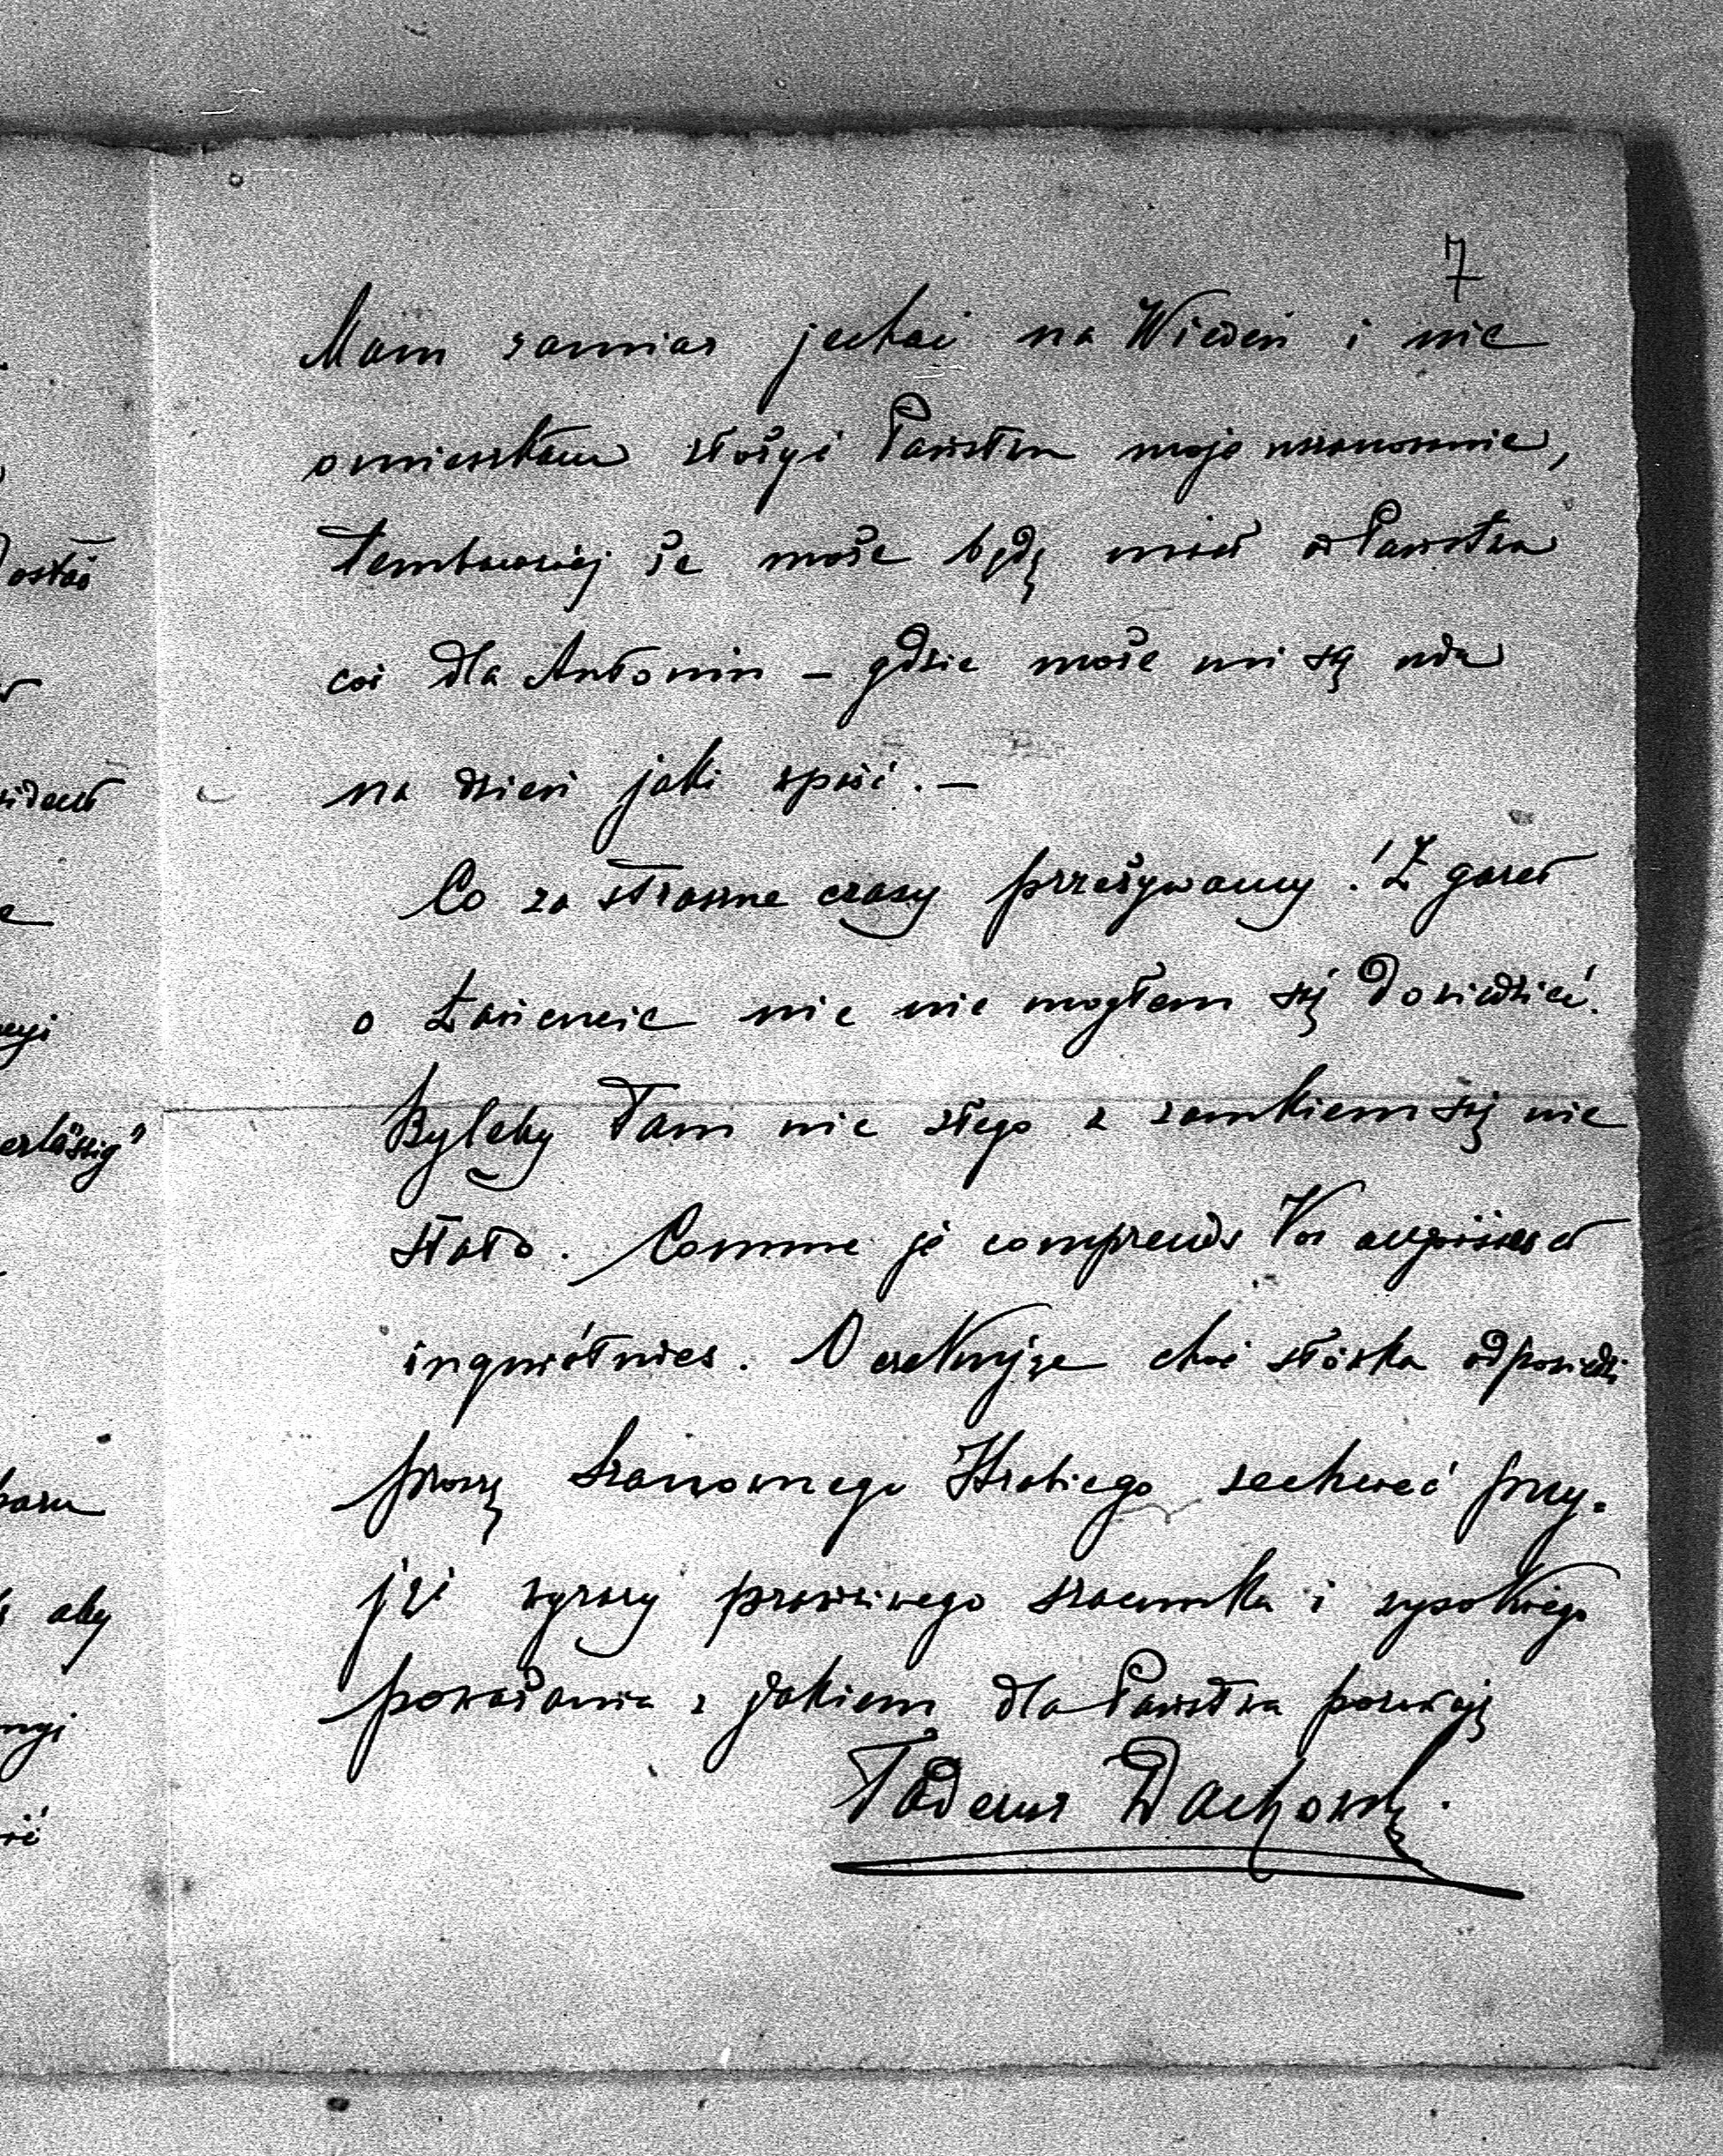 7
Mam zamiar jechać na Wiedeń i nie
omieszkam złożyć Państwu moje uszanowanie,
tembardziej że może będę miał od Państwa
coś dla Antonin – gdzie może mi się uda
na dzień jaki wpaść. –
Co za straszne czasy przeżywamy! Z gazet
o Łańcucie nic nie mogłam się dowiedzieć.
Byleby tam nic złego z zamkiem się nie
stało. Comme je comprends Vos angoisses et
inquiétudes. Oczekując choć słówka odpowiedzi
proszę Szanownego Hrabiego zechcieć przy-
jąć wyrazy prawdziwego szacunku i wysokiego
poważania z jakiem dla Państwa pozostaję
Tadeusz Dachowski.
ostać
erlässig"
aby